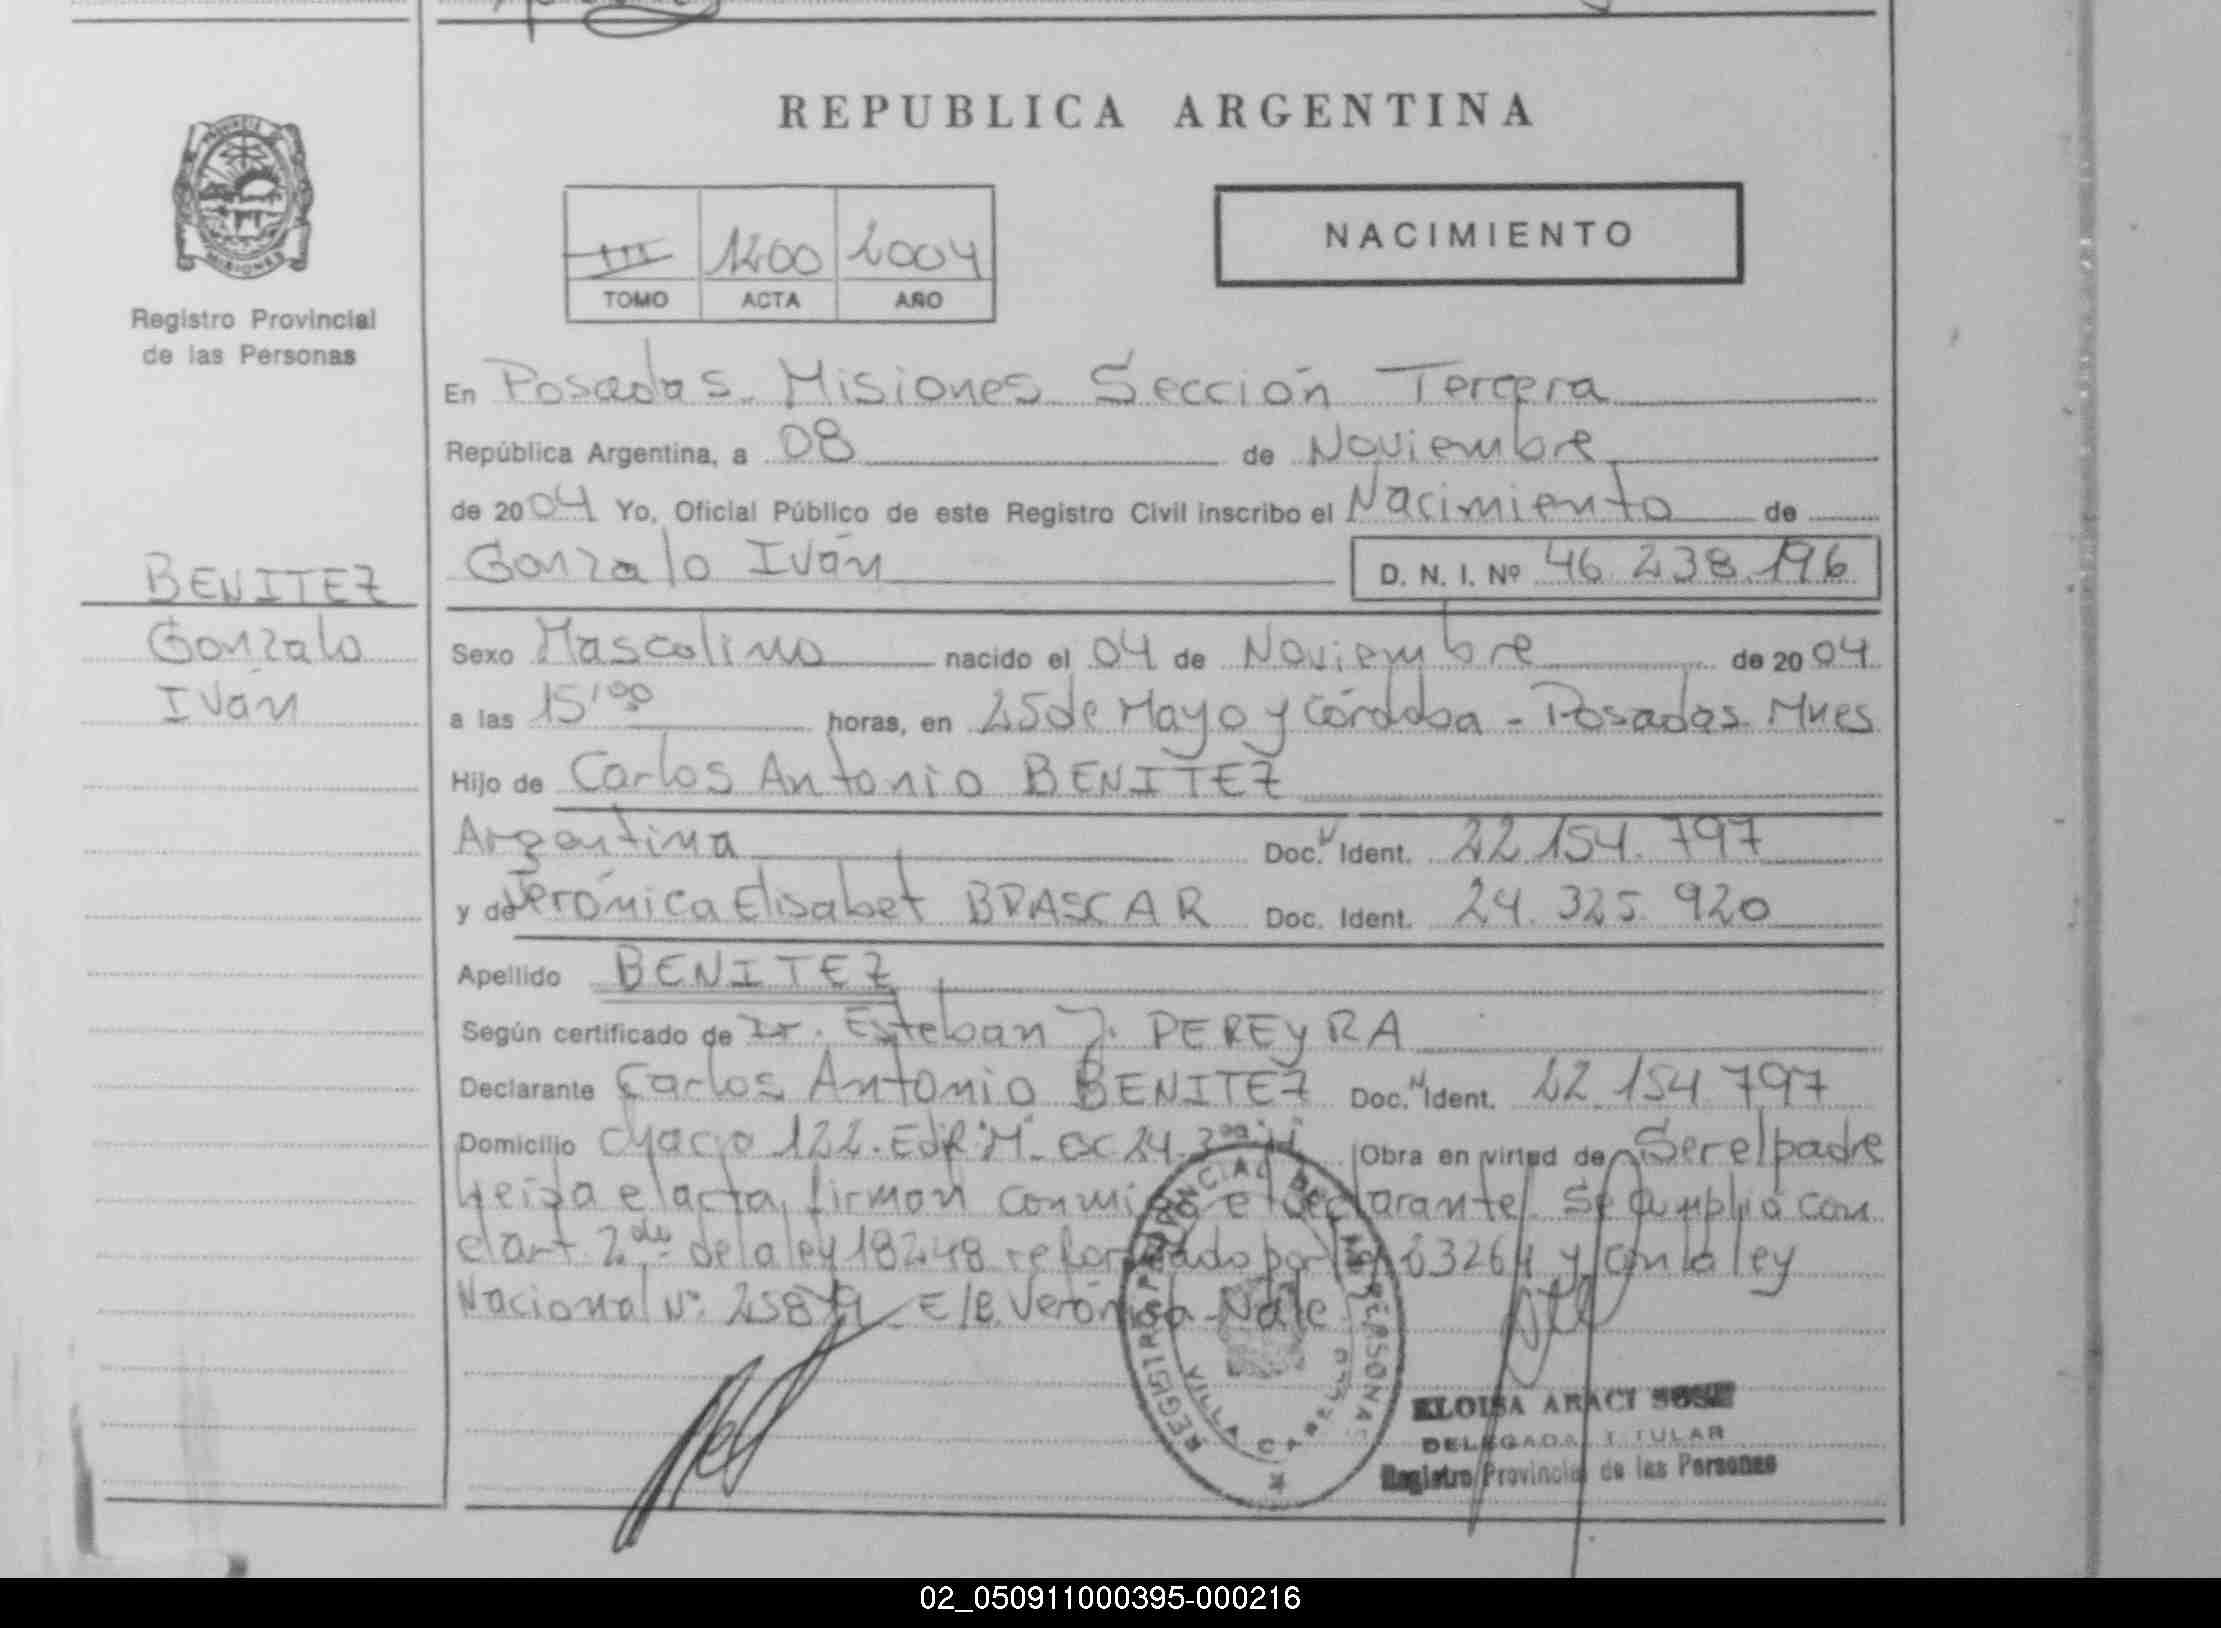 REPUBLICA ARGENTINA
PROVINCIA DE
MISIONES
Registro Provincial
de las Personas
NACIMIENTO
III 1200 2004
TOMO ACTA AÑO
En Posadas Misiones Sección Tercera
República Argentina, a 08 de Noviembre
de 2004 Yo, Oficial Público de este Registro Civil inscribo el Nacimiento de
Gonzalo Iván D. N. I. Nº 46.238.196
BENITEZ
Gonzalo
Iván
Sexo Masculino nacido el 04 de Noviembre de 2004
a las 15,00 horas, en 25 de Mayo y Córdoba - Posadas Mnes
Hijo de Carlos Antonio BENITEZ
Argentina Doc. N Ident. 22.154.797
y de Verónica Elisabet Doc. Ident. 24.325.920
Apellido BENITEZ
Según certificado de Dr. Esteban J. PEREYRA
Declarante Carlos Antonio BENITEZ Doc. N Ident. 22.154.797
Domicilio 122. "M" 24. Obra en virtud de Ser el padre
leida el acta, firman conmigo el declarante. Se cumplió con
el art. 2do de la ley 18248 reformado por ley 23264 y con la ley
Nacional Nº E/B. Verónica - Vale
REGISTRO PROVINCIAL DE LAS PERSONAS
VILLA CABELLO
ELOISA ARACI SOSE
DELEGADA TITULAR
Registro Provincial de las Personas
02_050911000395-000216